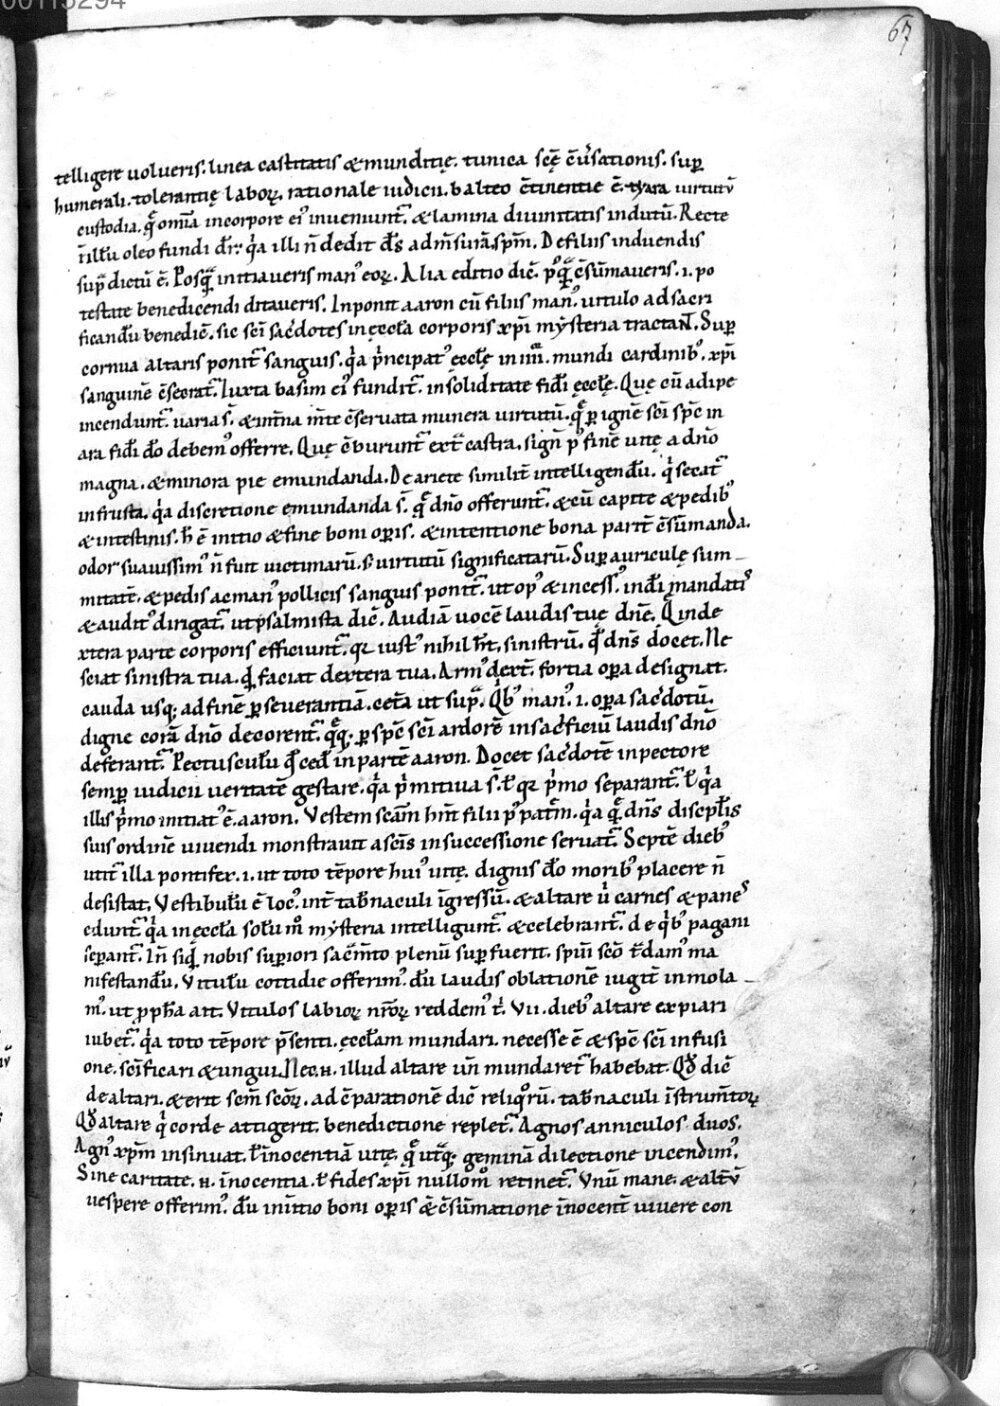 00113294
67
telligere uolueris. linea castitatis & munditię. tunica scę c̄uersationis. sup
humerali. tolerantię laborꝝ. rationale iudicii. balteo c̄tinentie ē. thyara uirtutū
custodia. quę omīa in corpore ei' inueniunt̄. & lamina diuinitatis indutū. Recte
illū oleo fundi dr̄. qa illi n̄ dedit ds̄ ad mensurā spm̄. De filiis induendis
sup dictū ē. Posquā initiaueris man' eoꝝ. Alia editio dic̄. pq̄ c̄sūmaueris. i. po
testate benedicendi ditaueris. Inponit aaron cū filiis man' uitulo ad sacri
ficandū benedic̄. sic sc̄i sac̄dotes in ęccła corporis xp̄i mẏsteria tractaɴt. Sup
cornua altaris ponit̄ sanguis. qa p̄ncipat' ęcclę in iiii. mundi cardinib'. xp̄i
sanguinē c̄secrat̄. Iuxta basim ei' fundit̄. in soliditate fidi ęcclę. Quę cū adipe
incendunt̄. uaria s̄. & int̄na m̄te c̄seruata munera uirtutū. quę p ignē sc̄i spc̄ in
ara fidi dō debem' offerre. Quę c̄burunt̄ ext̄ castra. sign̄ p' finē uitę a dn̄o
magna. & minora pie emundanda. De ariete similit̄ intelligendū. qi secat̄
in frusta. qa discretione emundanda s̄. quę dn̄o offerunt̄. & cū capite & pedib'
& intestinis. h̄ ē initio & fine boni opis. & intentione bona parit̄ c̄sūmanda.
odor suauissim' n̄ fuit uictimarū. s; uirtutū significatarū. Sup auriculę sum
mitatē. & pedis ac man' pollicis sanguis ponit̄. ut op' & incess' indi mandatis
& audit' dirigat̄. ut psalmista dic̄. Audiā uocē laudis tuę dn̄e. Q in de
xtera parte corporis efficiunt̄. qr iust' nihil h̄t. sinistrū. qd dn̄s docet. Ne
sciat sinistra tua. qd faciat dextera tua. Arm' dext̄. fortia opa designat.
cauda usq; ad finē pseuerantiā. cet̄a ut sup. Qb' man' i. opa sac̄dotū.
digne corā dn̄o decorent̄. quęq; p spc̄ sc̄i ardorē in sac̄ficiū laudis dn̄o
deferant̄. Pectusculū qd ced in partē aaron. Docet sac̄dotē in pectore
semp iudicii ueritatē gestare. qa p̄mitiua s̄. ł qr p̄mo separant̄. ł qa
illis p̄mo initiat' ē. aaron. Vestem sc̄am hn̄t filii p' patr̄m. qa quę dn̄s discipłis
suis ordinē uiuendi monstrauit a sc̄is in successione seruat̄. Septē dieb'
utit̄ illa pontifex. i. ut toto tēpore hui' uitę. dignis dō morib' placere n̄
desistat. Vestibulū ē loc'. int̄ tabn̄aculi īgressū. & altare ū carnes & panes
edunt̄. qa in ęccła solū m̄ mẏsteria intelligunt̄. & celebrant̄. de qb' pagani
sepant̄. In̄ siqd nobis supiori sac̄m̄to plenū supfuerit. spiu sc̄o t̄dam' ma
nifestandū. Vitulū cottidie offerim'. dū laudis oblationē iugit̄ in mola
m'. ut ppħa ait. Vitulos labioꝝ nr̄oꝝ reddem' t̄. VII. dieb' altare expiari
iubet̄. qa toto tēpore p̄senti. ęcclam mundari. necesse ē & spc̄ sc̄i infusi
one. sc̄ificari & ungui. Nec. n. illud altare un̄ mundaret̄ habebat. Qd dic̄
de altari. & erit sc̄m sc̄oꝝ. ad c̄parationē dic̄ reliqorū. tabn̄aculi īstrum̄toꝝ
Qd altare qi corde attigerit. benedictione replet̄. Agnos anniculos duos.
Agn' xp̄m insinuat. ł īnocentiā uitę. quę utq; geminā dilectione incendim'.
Sine caritate. n. īnocentia. ł fides xp̄i nullom̄ retinet̄. Vnū mane. & alt̄ū
uespere offerim'. dū in initio boni opis & c̄sūmatione īnocent̄ uiuere con